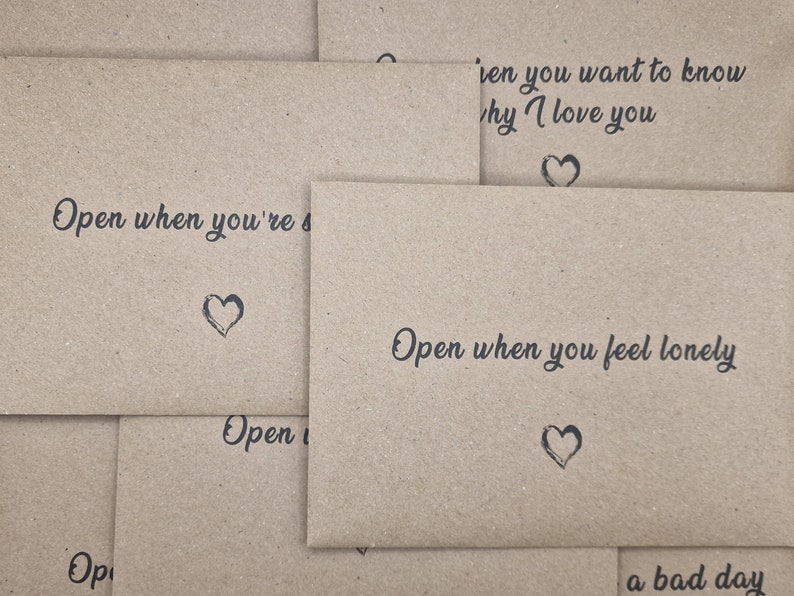 when you want to know
why I love you
Open when you're
Open when you feel lonely
Open
a bad day